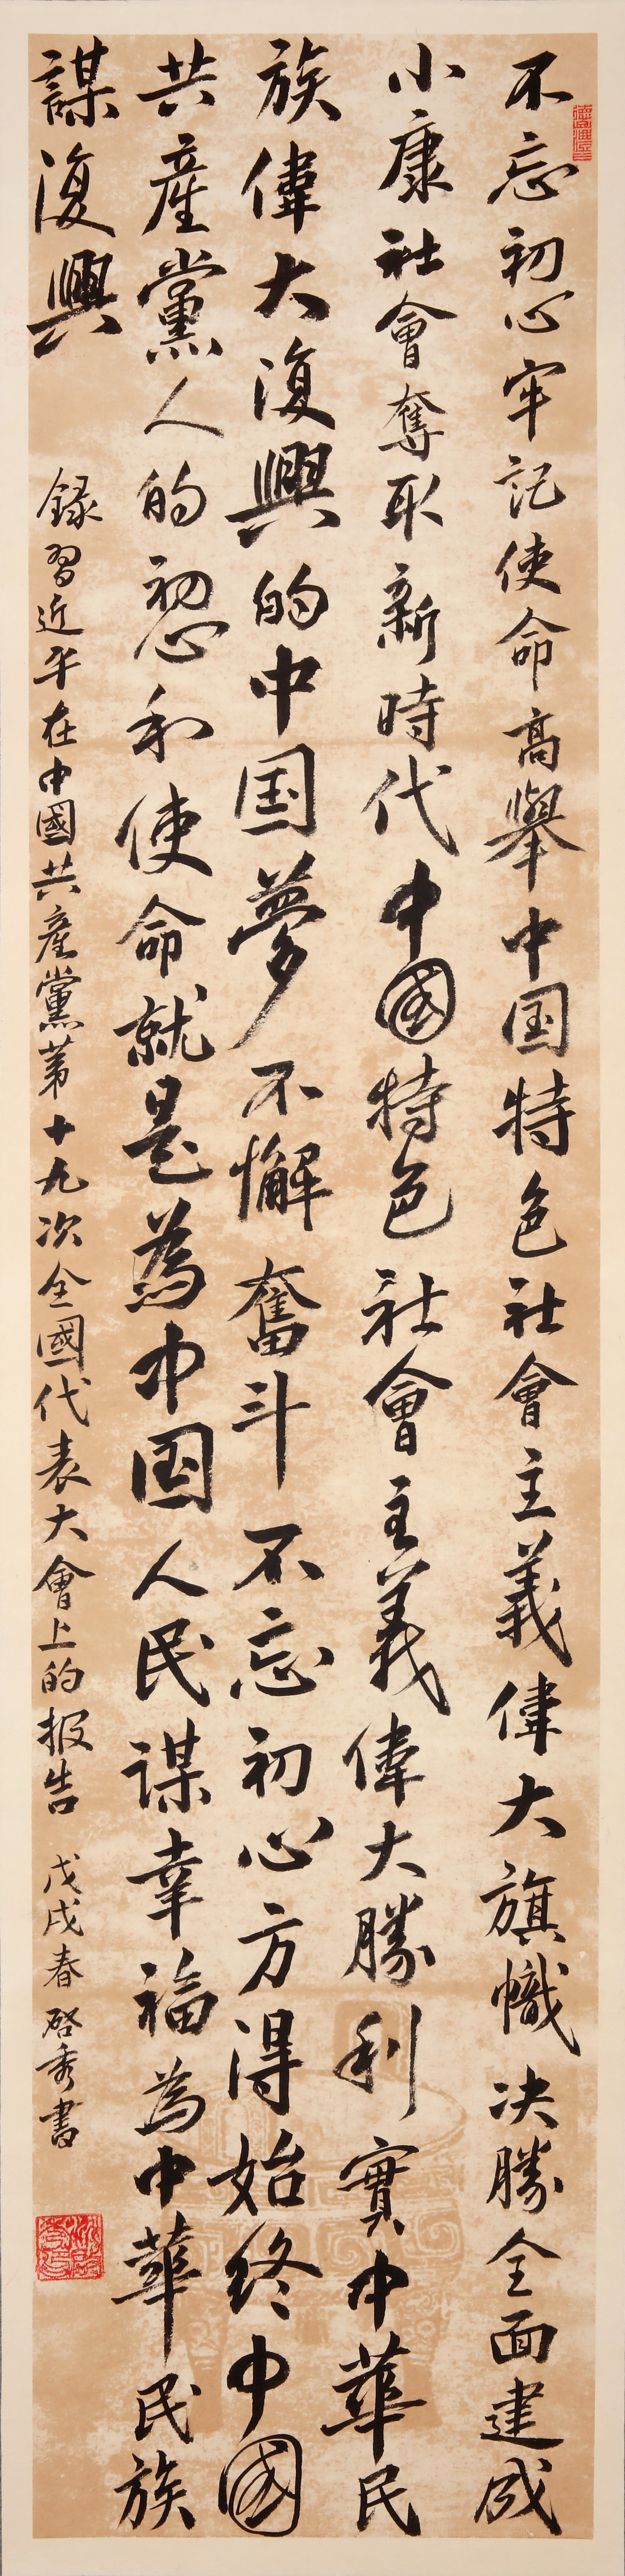 不忘初心牢記使命高舉中国特色社會主義偉大旗幟决勝全面建成
小康社會奪取新時代中國特色社會主義偉大勝利實中華民
族偉大復興的中国夢不懈奮斗不忘初心方得始终中國
共產黨人的初心和使命就是為中国人民謀幸福為中華民族
謀復興
録習近平在中國共産黨第十九次全國代表大會上的报告 戊戌春啓秀書